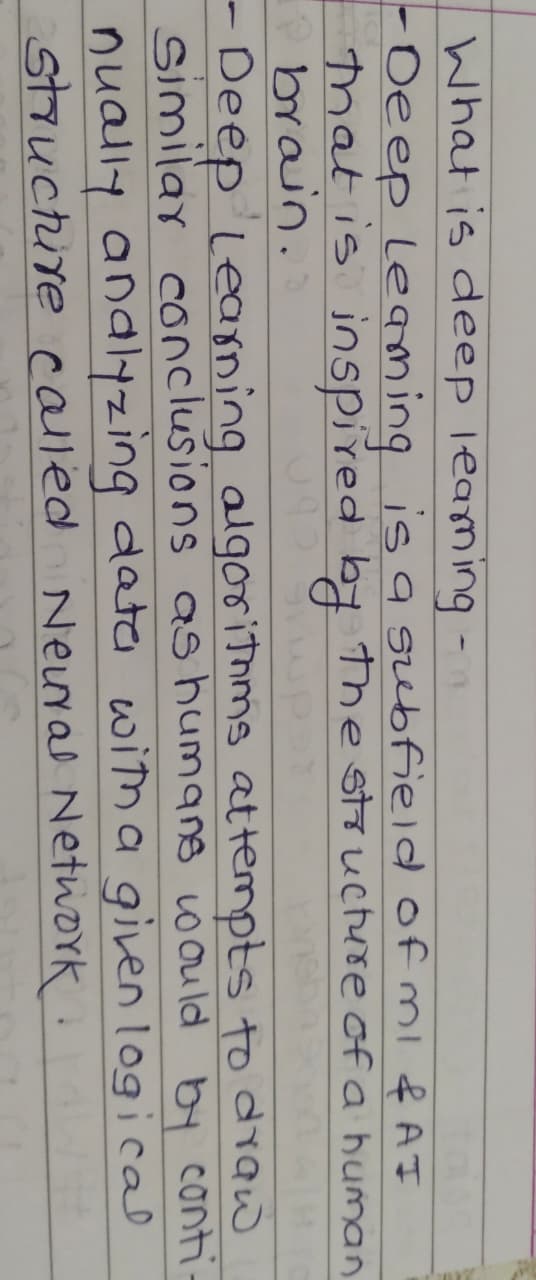 What is deep learning -
- Deep Learning is a subfield of ml & AI
that is inspired by the structure of a human
brain.
- Deep Learning algorithms attempts to draw
similar conclusions as humans would by conti-
nually analyzing data with a given logical
structure called Neural Network.